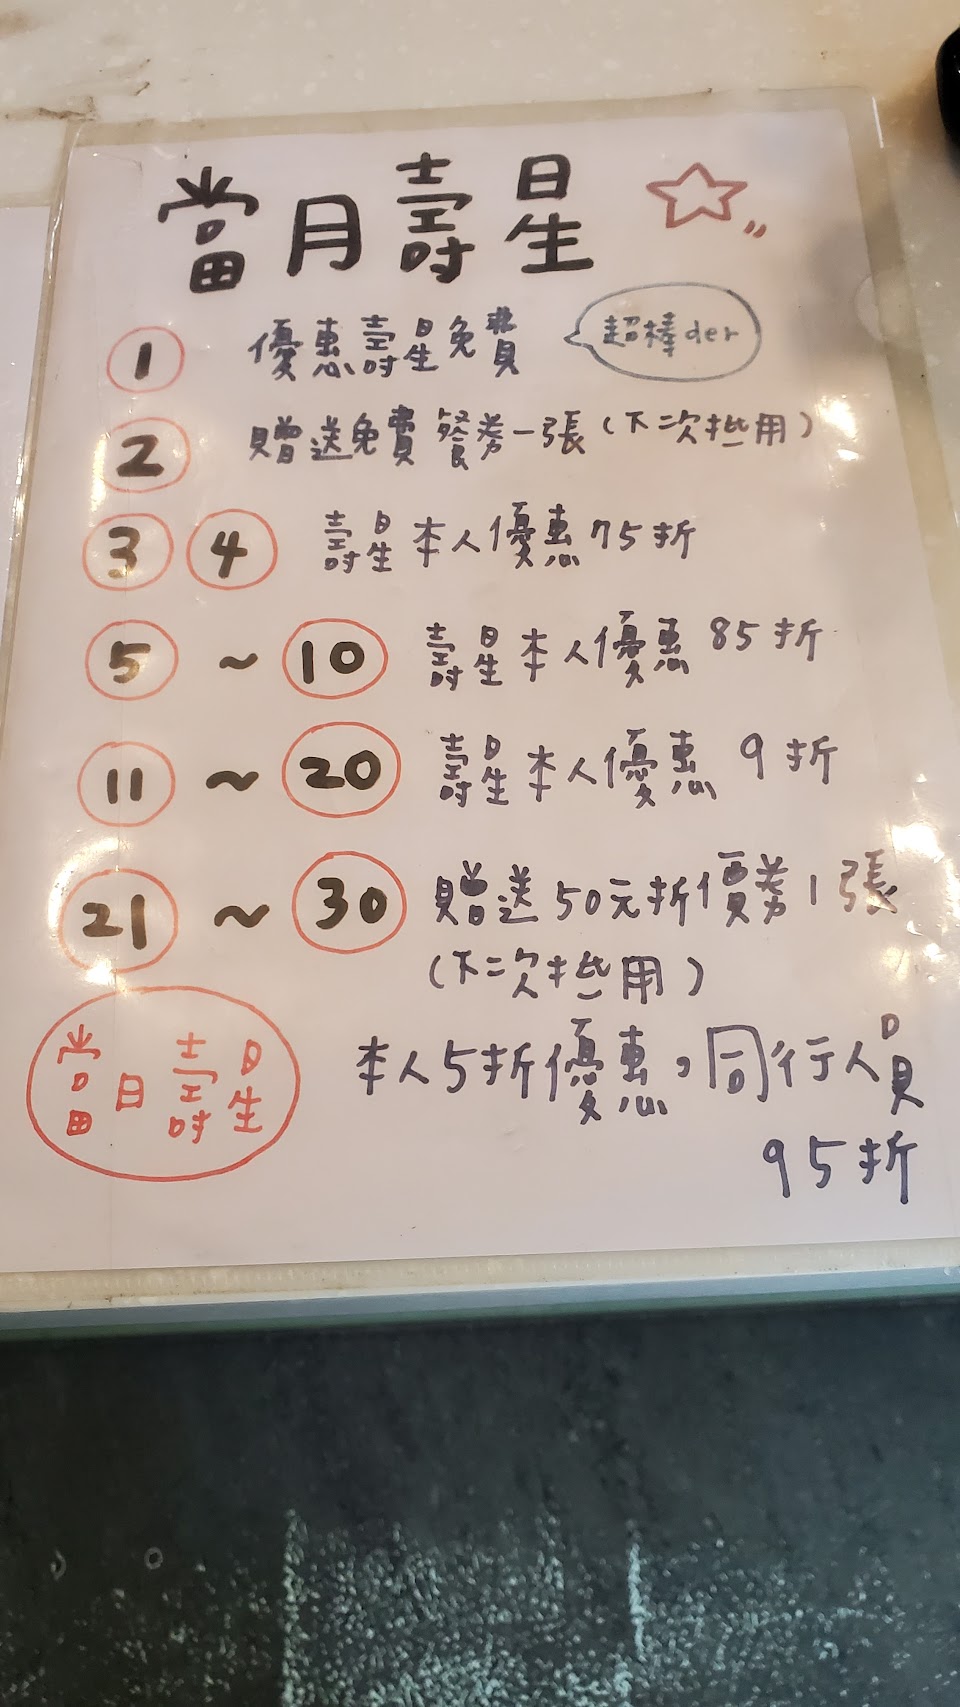 當月壽星
1 優惠壽星免費 超棒der
2 贈送免費餐券一張(下次抵用)
3 4 壽星本人優惠75折
5 ~ 10 壽星本人優惠 85折
11 ~ 20 壽星本人優惠 9折
21 ~ 30 贈送50元折價券1張
(下次抵用)
當日壽星 本人5折優惠,同行人員
95折